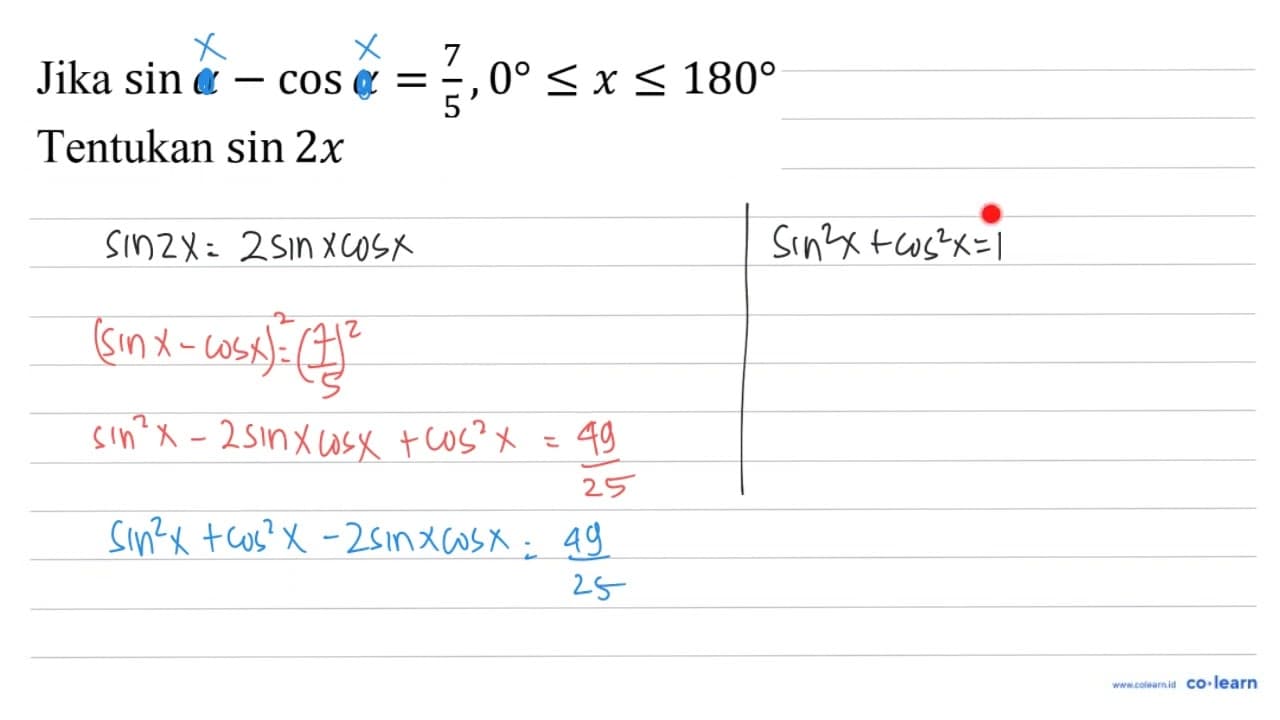 x x
Jika sin α − cos α = 7/5, 0° ≤ x ≤ 180°
Tentukan sin 2x
sin2x = 2sinxcosx
sin²x + cos²x = 1
(sinx − cosx)² = (7/5)²
sin²x − 2sinxcosx + cos²x = 49/25
sin²x + cos²x − 2sinxcosx = 49/25
www.colearn.id co·learn